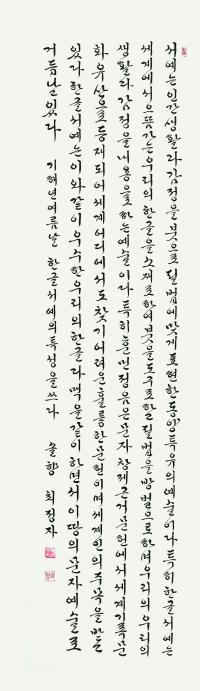 서예는 인간생활과 감정을 붓으로 필법에 맞게 표현한 동양 특유의 예술이다 특히 한글서예는
세계에서 으뜸가는 우리의 한글을 소재로 하여 붓을 도구로 한 필법을 방법으로 하며 우리의 우리의
생활과 감정을 내용으로 하는 예술이다 특히 훈민정음은 문자 창제 근거 문헌에서 세계기록문
화유산으로 등재되어 세계 어디에서도 찾기 어려운 훌륭한 문헌이며 세계인의 주목을 받는
있다 한글서예는 이와 같이 우수한 우리의 한글과 맥을 같이 하면서 이 땅의 문자예술로
거듭날 있다 기해년 여름날 한글서예의 특성을 쓰다 솔향 최정자